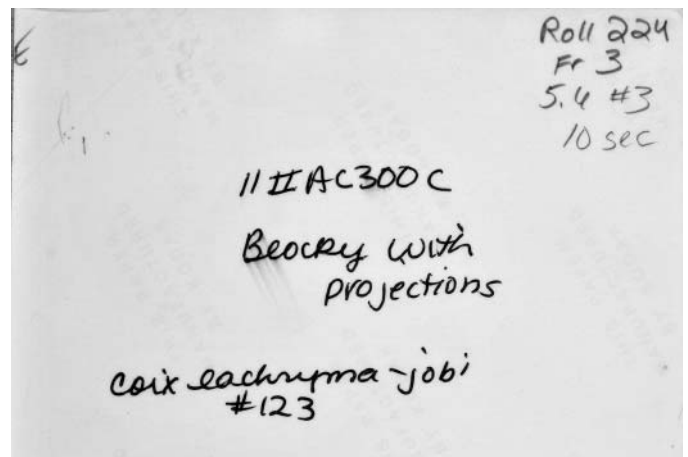 Roll 224
Fr 3
5.6 #3
10 sec
11 II AC300C
Blocky with
projections
Coix lachryma-jobi
#123